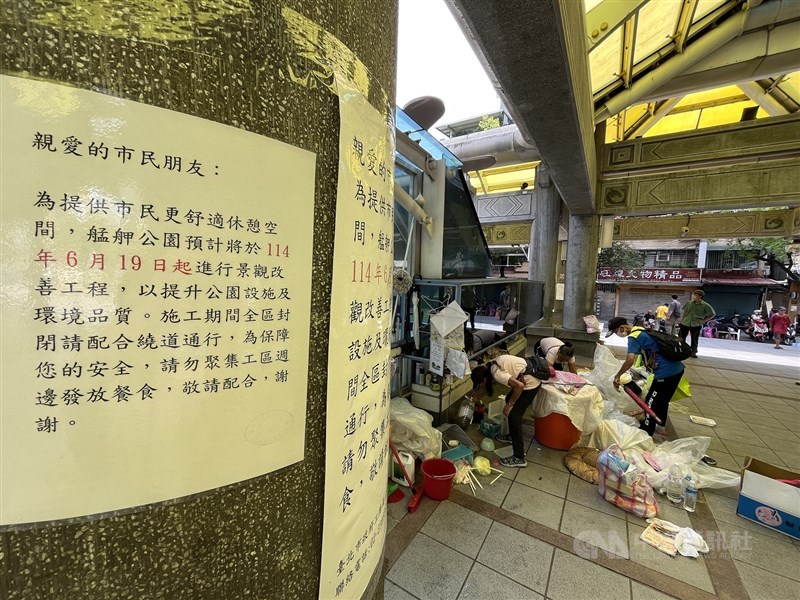 親愛的市民朋友：
為提供市民更舒適休憩空
間，艋舺公園預計將於114
年6月19日起進行景觀改
善工程，以提升公園設施及
環境品質。施工期間全區封
閉請配合繞道通行，為保障
您的安全，請勿聚集工區週
邊發放餐食，敬請配合，謝
謝。
親愛的市
為提供
間，艋舺
114年6
觀改善
設施及
間全區
通行，
請勿聚
食，敬
臺北市政府
聯絡電話
文化精品
CNA
訊社